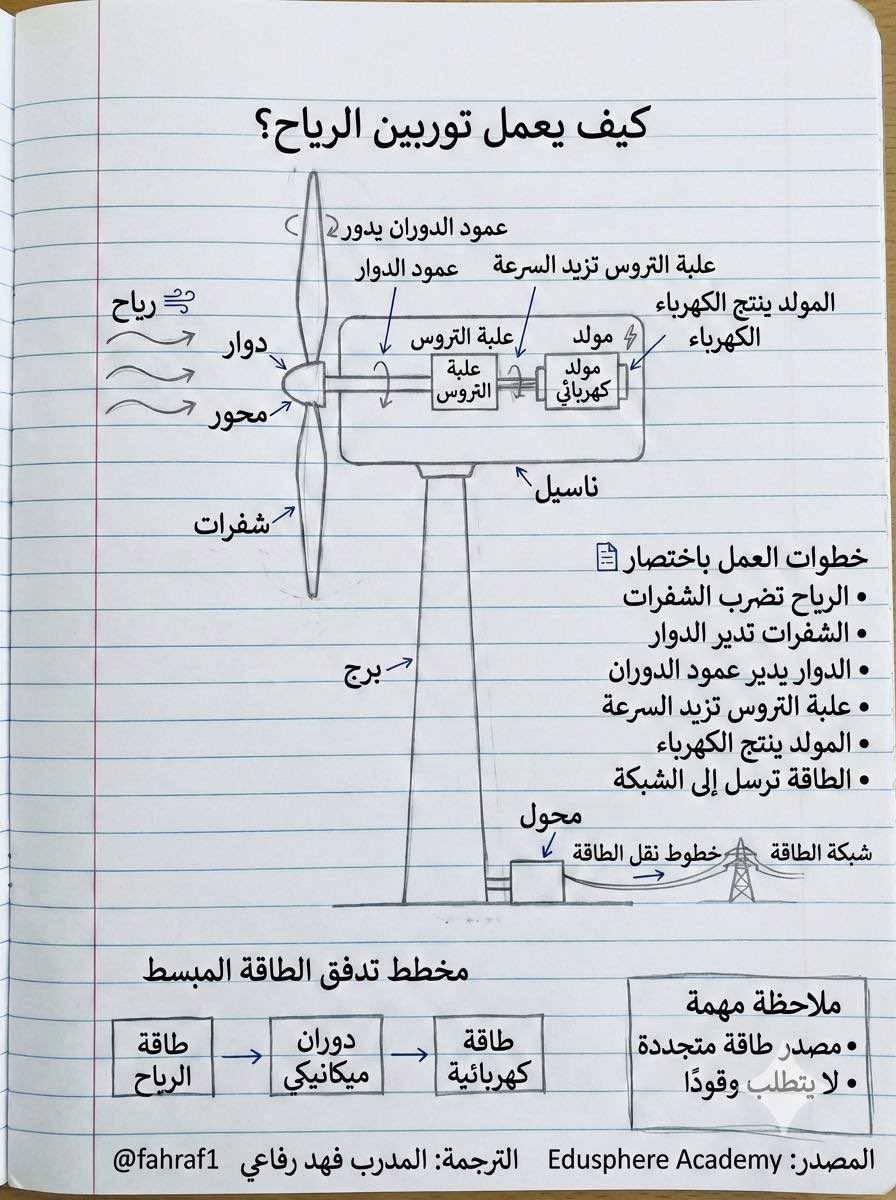 كيف يعمل توربين الرياح؟
عمود الدوران يدور
علبة التروس تزيد السرعة
عمود الدوار
المولد ينتج الكهرباء
الكهرباء
رياح
دوار
محور
علبة التروس
مولد
علبة
التروس
مولد
كهربائي
ناسيل
شفرات
برج
خطوات العمل باختصار
• الرياح تضرب الشفرات
• الشفرات تدير الدوار
• الدوار يدير عمود الدوران
• علبة التروس تزيد السرعة
• المولد ينتج الكهرباء
• الطاقة ترسل إلى الشبكة
محول
خطوط نقل الطاقة
شبكة الطاقة
مخطط تدفق الطاقة المبسط
طاقة
الرياح
دوران
ميكانيكي
طاقة
كهربائية
ملاحظة مهمة
• مصدر طاقة متجددة
• لا يتطلب وقودًا
المصدر: Edusphere Academy الترجمة: المدرب فهد رفاعي @fahraf1